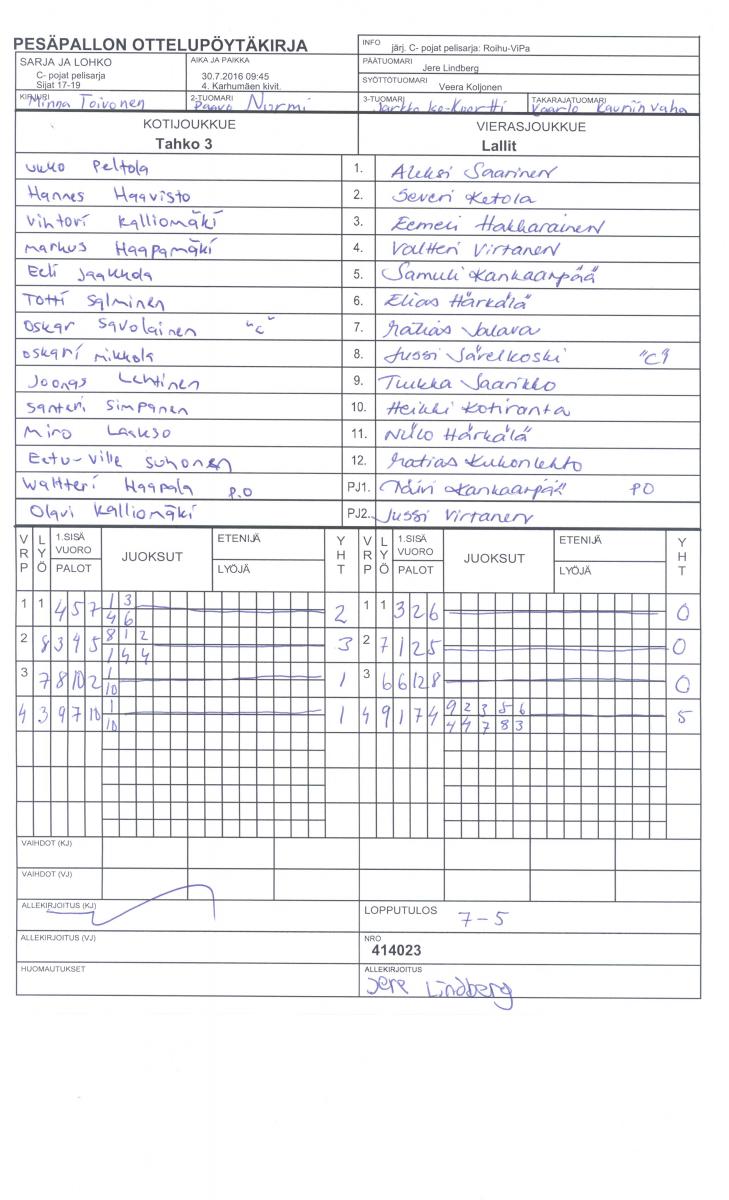 PESÄPALLON OTTELUPÖYTÄKIRJA
INFO järj. C- pojat pelisarja: Roihu-ViPa
SARJA JA LOHKO
C- pojat pelisarja
Sijat 17-19
AIKA JA PAIKKA
30.7.2016 09:45
4. Karhumäen kivit.
PÄÄTUOMARI
Jere Lindberg
SYÖTTÖTUOMARI
Veera Koljonen
KIRJURI Minna Toivonen
2-TUOMARI Paavo Nurmi
3-TUOMARI Jarkko
TAKARAJATUOMARI Kaarlo
KOTIJOUKKUE VIERASJOUKKUE
Tahko 3 Lallit
Ukko Peltola 1. Aleksi Saarinen
Hannes Haavisto 2. Severi Ketola
Vihtori Kalliomäki 3. Eemeli Hakkarainen
Markus Haapamäki 4. Valtteri Virtanen
Eeli Jaakkola 5. Samuli Kankaanpää
Totti Salminen 6. Elias Härkälä
Oskar Savolainen "C" 7. Matias Jalava
Oskari Mikkola 8. Jussi Särelkoski "C"
Joonas Lehtinen 9. Tuukka Saarikko
Santeri Simpanen 10. Heikki Kotiranta
Miro Laakso 11. Niilo Härkälä
Eetu-Ville Suhonen 12. Matias Kukonlehto
Waltteri Haapala P.O PJ1. Päivi Kankaanpää PO
Olavi Kalliomäki PJ2.. Jussi Virtanen
VRP LYÖ 1.SISÄ VUORO PALOT JUOKSUT ETENIJÄ LYÖJÄ YHT VRP LYÖ 1.SISÄ VUORO PALOT JUOKSUT ETENIJÄ LYÖJÄ YHT
1 1 4 5 7 1 3 2 1 1 3 2 6 0
4 6
2 8 3 9 5 8 1 2 3 2 7 1 2 5 0
1 4 4
3 7 8 10 2 1 1 3 6 6 12 8 0
10
4 3 9 7 10 1 1 4 9 1 7 4 9 2 3 5 6 5
10 4 4 7 8 3
VAIHDOT (KJ)
VAIHDOT (VJ)
ALLEKIRJOITUS (KJ)
LOPPUTULOS 7-5
ALLEKIRJOITUS (VJ)
NRO
414023
HUOMAUTUKSET
ALLEKIRJOITUS
Jere Lindberg